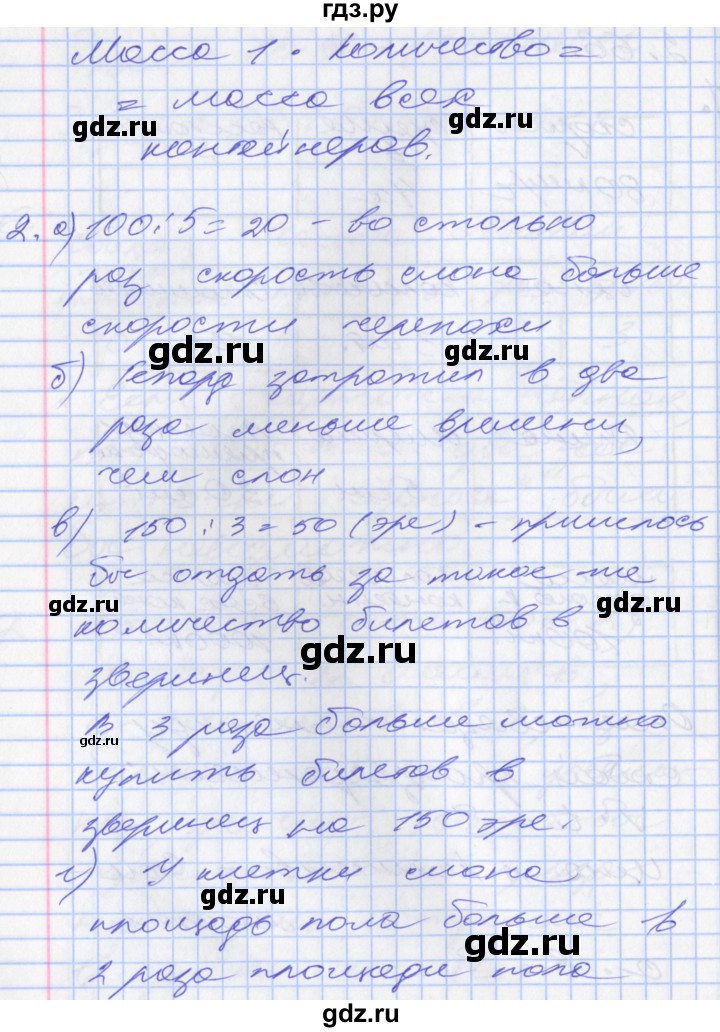 гдз.ру
Масса 1 · количество =
= масса всех
контейнеров.
2. а) 100 : 5 = 20 – во столько
раз скорость слона больше
скорости черепахи
б) Гепард затратил в два
раза меньше времени,
чем слон
в) 150 : 3 = 50 (эре) – пришлось
бы отдать за такое же
количество билетов в
зверинец.
В 3 раза больше можно
купить билетов в
зверинец на 150 эре.
г) У клетки слона
площадь пола больше в
2 раза площади пола
gdz.ru
gdz.ru
gdz.ru
gdz.ru
gdz.ru
gdz.ru
gdz.ru
gdz.ru
gdz.ru
gdz.ru
gdz.ru
gdz.ru
gdz.ru